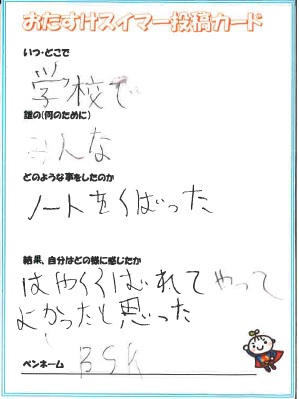 おたすけスイマー投稿カード
いつ・どこで
学校で
誰の(何のために)
みんな
どのような事をしたのか
ノートをくばった
結果、自分はどの様に感じたか
はやくくばれてやって
よかったと思った
ペンネーム BSK